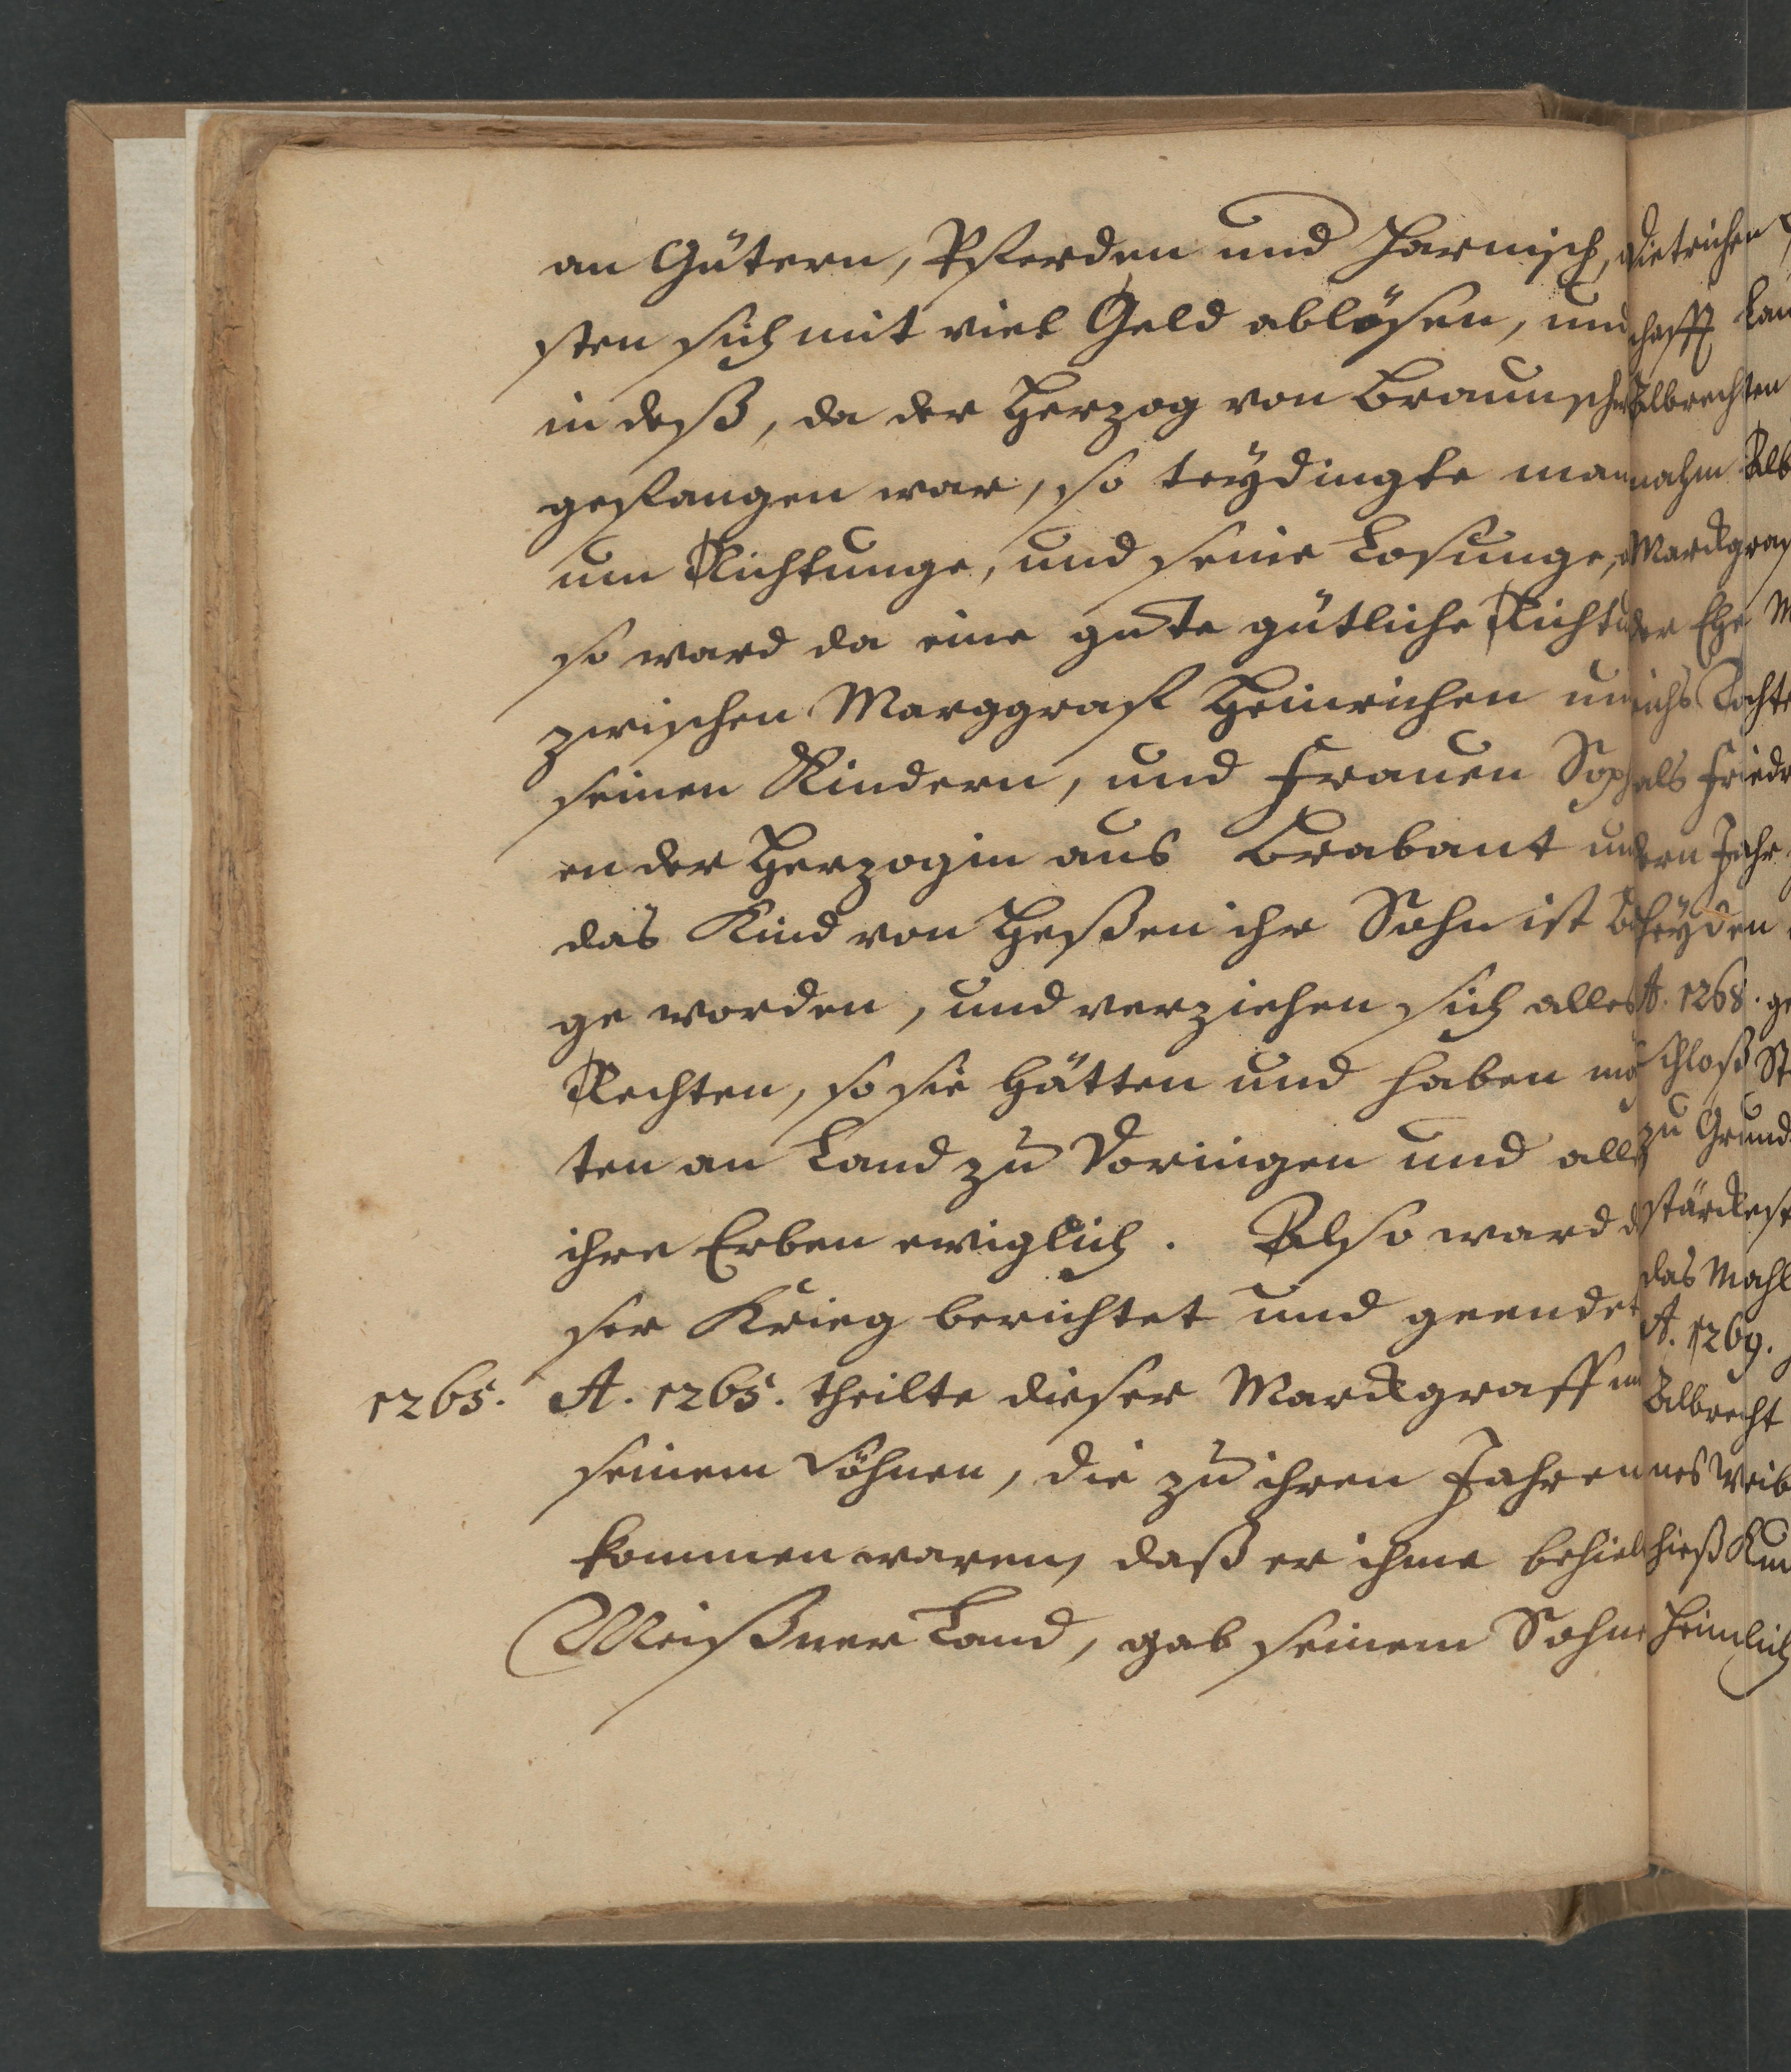 an Gütern, Pferden und Harnisch,
sten sich mit viel Geld ablösen, und
in deß, da der Herzog von Braunschw
gefangen war, so teÿdingte man
um Richtunge, und seine Losunge,
so ward da eine gute gütliche Richtu
zwischen Marggraf Heinrichen un
seinen Kindern, und Frauen Soph
en der Herzogin aus Brabant und
das Kind von Heßen ihr Sohn ist
ge worden, und verziehen sich alles
Rechten, so sie hätten und haben mö
ten an Land zu Doringen und alle
ihre Erben ewiglich. Also ward d
ser Krieg berichtet und geendet
1265. A. 1265. theilte dieser Marckgraff
seinem Söhnen, die zu ihren Jahren
kommen waren, daß er ihme behiel
Meißner Land, gab seinem Sohne
Dietrichen
schafft Lan
Albrechten
nahm Alb
Marckgraf
der Ehe M
richs Tochte
als Friedr
dern Jahr
beÿden
A. 1268. ge
Schloß St
zu Grund
stärckest
das Mahl
A. 1269.
Albrecht
nes Weib
hieß Kun
heimlich